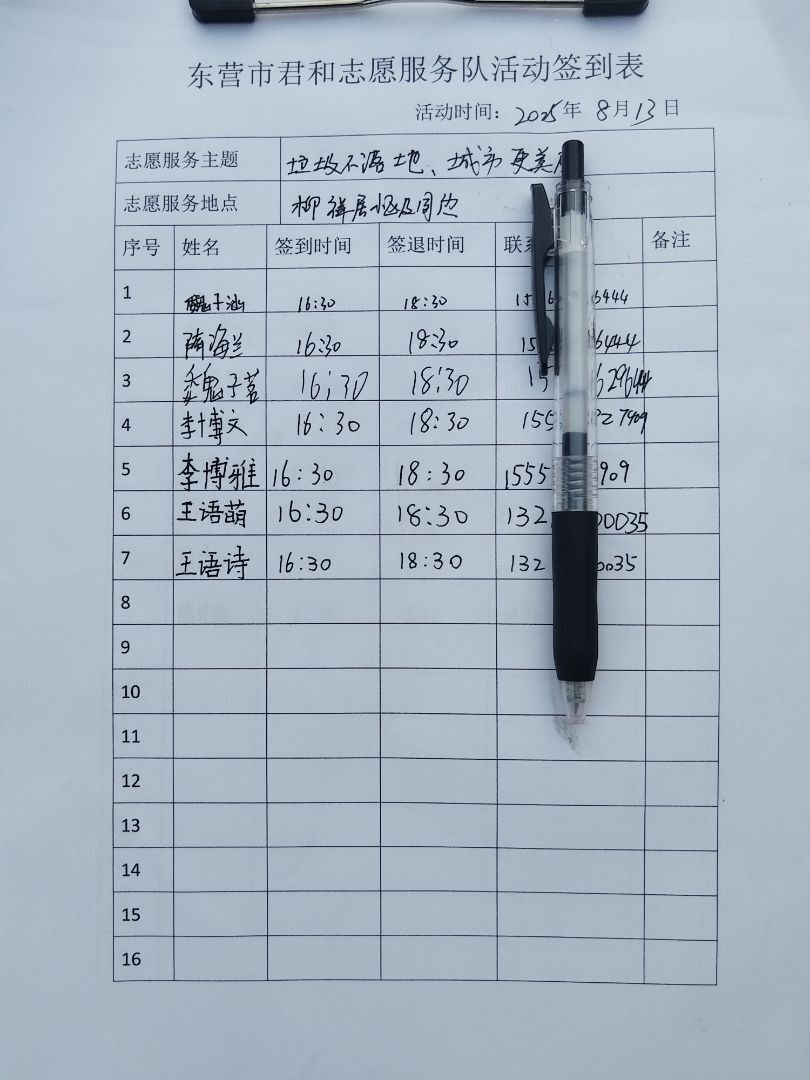 东营市君和志愿服务队活动签到表
活动时间：2025年 8月13日
志愿服务主题 垃圾不落地、城市更美
志愿服务地点 柳祥居小区及周边
序号 姓名 签到时间 签退时间 联 备注
1 魏子涵 16:30 18:30 15 6444
2 隋海兰 16:30 18:30 15 6444
3 魏子茗 16:30 18:30 15 629644
4 李博文 16:30 18:30 155 27909
5 李博雅 16:30 18:30 1555 909
6 王语萌 16:30 18:30 132 00035
7 王语诗 16:30 18:30 132 0035
8
9
10
11
12
13
14
15
16